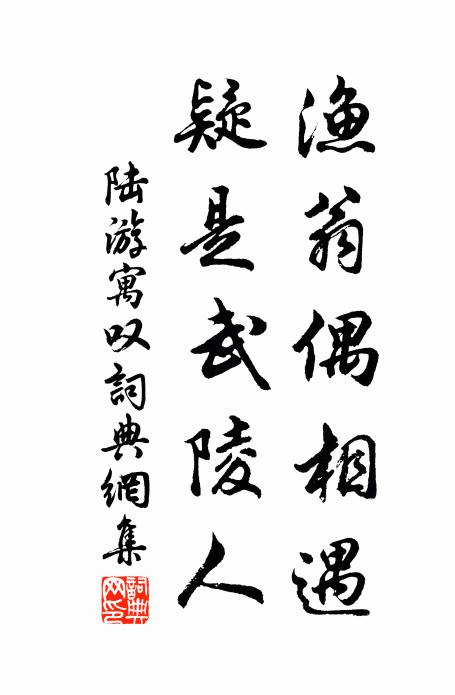 渔翁偶相遇
疑是武陵人
陆游寓叹詞典網集
詞典網印